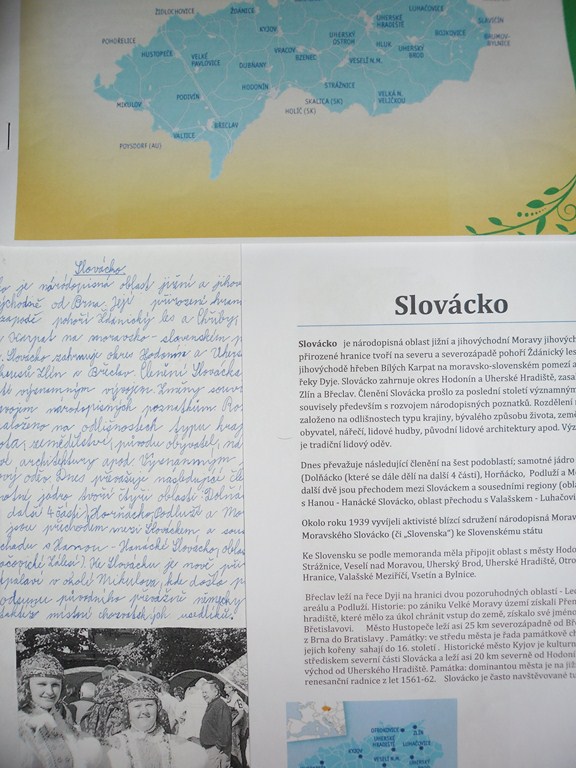 ŽIDLOCHOVICE
ŽDÁNICE
LUHAČOVICE
SLAVIČÍN
POHOŘELICE
KYJOV
UHERSKÉ
HRADIŠTĚ
BOJKOVICE
BRUMOV-
BYLNICE
HUSTOPEČE
VELKÉ
PAVLOVICE
VRACOV
UHERSKÝ
OSTROH
HLUK
UHERSKÝ
BROD
DUBŇANY
BZENEC
VESELÍ N.M.
HODONÍN
STRÁŽNICE
MIKULOV
PODIVÍN
SKALICA (SK)
VELKÁ N.
VELIČKOU
HOLÍČ (SK)
BŘECLAV
VALTICE
POYSDORF (AU)
Slovácko
je národopisná oblast jižní a jihov
východně od Brna. Její přirozené hran
západě pohoří Ždánický les a Chřiby,
Karpat na moravsko-slovenském p
Slovácko zahrnuje okres Hodonín a Uhers
Zlín a Břeclav. Členění Slovácka
významným vývojem
rozvojem národopisných poznatků. Roz
založeno na odlišnostech typu kraj
zemědělství, původu obyvatel, ná
architektury apod. Významným
oděv. Dnes převažuje následující čle
jádro tvoří čtyři oblasti Dolňá
další 4 části), Horňácko, Podluží a Mo
jsou přechodem mezi Slováckem a sou
s Hanou - Hanácké Slovácko, oblas
Ke Slovácku je nově při
v okolí Mikulova, kde došlo p
odsunu původního převážně německý
místní chorvatských usedlíků.
Slovácko
Slovácko je národopisná oblast jižní a jihovýchodní Moravy jihových
přirozené hranice tvoří na severu a severozápadě pohoří Ždánický les
jihovýchodě hřeben Bílých Karpat na moravsko-slovenském pomezí a
řeky Dyje. Slovácko zahrnuje okres Hodonín a Uherské Hradiště, zasa
Zlín a Břeclav. Členění Slovácka prošlo za poslední století významným
souvisely především s rozvojem národopisných poznatků. Rozdělení
založeno na odlišnostech typu krajiny, bývalého způsobu života, země
obyvatel, nářečí, lidové hudby, původní lidové architektury apod. Výz
je tradiční lidový oděv.
Dnes převažuje následující členění na šest podoblastí; samotné jádro
(Dolňácko (které se dále dělí na další 4 části), Horňácko, Podluží a Mo
další dvě jsou přechodem mezi Slováckem a sousedními regiony (obl
s Hanou - Hanácké Slovácko, oblast přechodu s Valašskem - Luhačovi
Okolo roku 1939 vyvíjeli aktivisté blízcí sdružení národopisná Morav
Moravského Slovácko (či „Slovenska“) ke Slovenskému státu
Ke Slovensku se podle memoranda měla připojit oblast s městy Hodo
Strážnice, Veselí nad Moravou, Uherský Brod, Uherské Hradiště, Otro
Hranice, Valašské Meziříčí, Vsetín a Bylnice.
Břeclav leží na řece Dyji na hranici dvou pozoruhodných oblastí - Led
areálu a Podluží. Historie: po zániku Velké Moravy území získali Přem
hradiště, které mělo za úkol chránit vstup do země, získalo své jméno
Břetislavovi. Město Hustopeče leží asi 25 km severozápadně od Bře
z Brna do Bratislavy . Památky: ve středu města je řada památkově ch
jejich kořeny sahají do 16. století . Historické město Kyjov je kulturn
střediskem severní části Slovácka a leží asi 20 km severně od Hodoní
východ od Uherského Hradiště. Památka: dominantou města je na již
renesanční radnice z let 1561-62. Slovácko je často navštěvované tu
OTROKOVICE
ZLÍN
UHERSKÉ
HRADIŠTĚ
LUHAČOVICE
KYJOV
VESELÍ N.M.